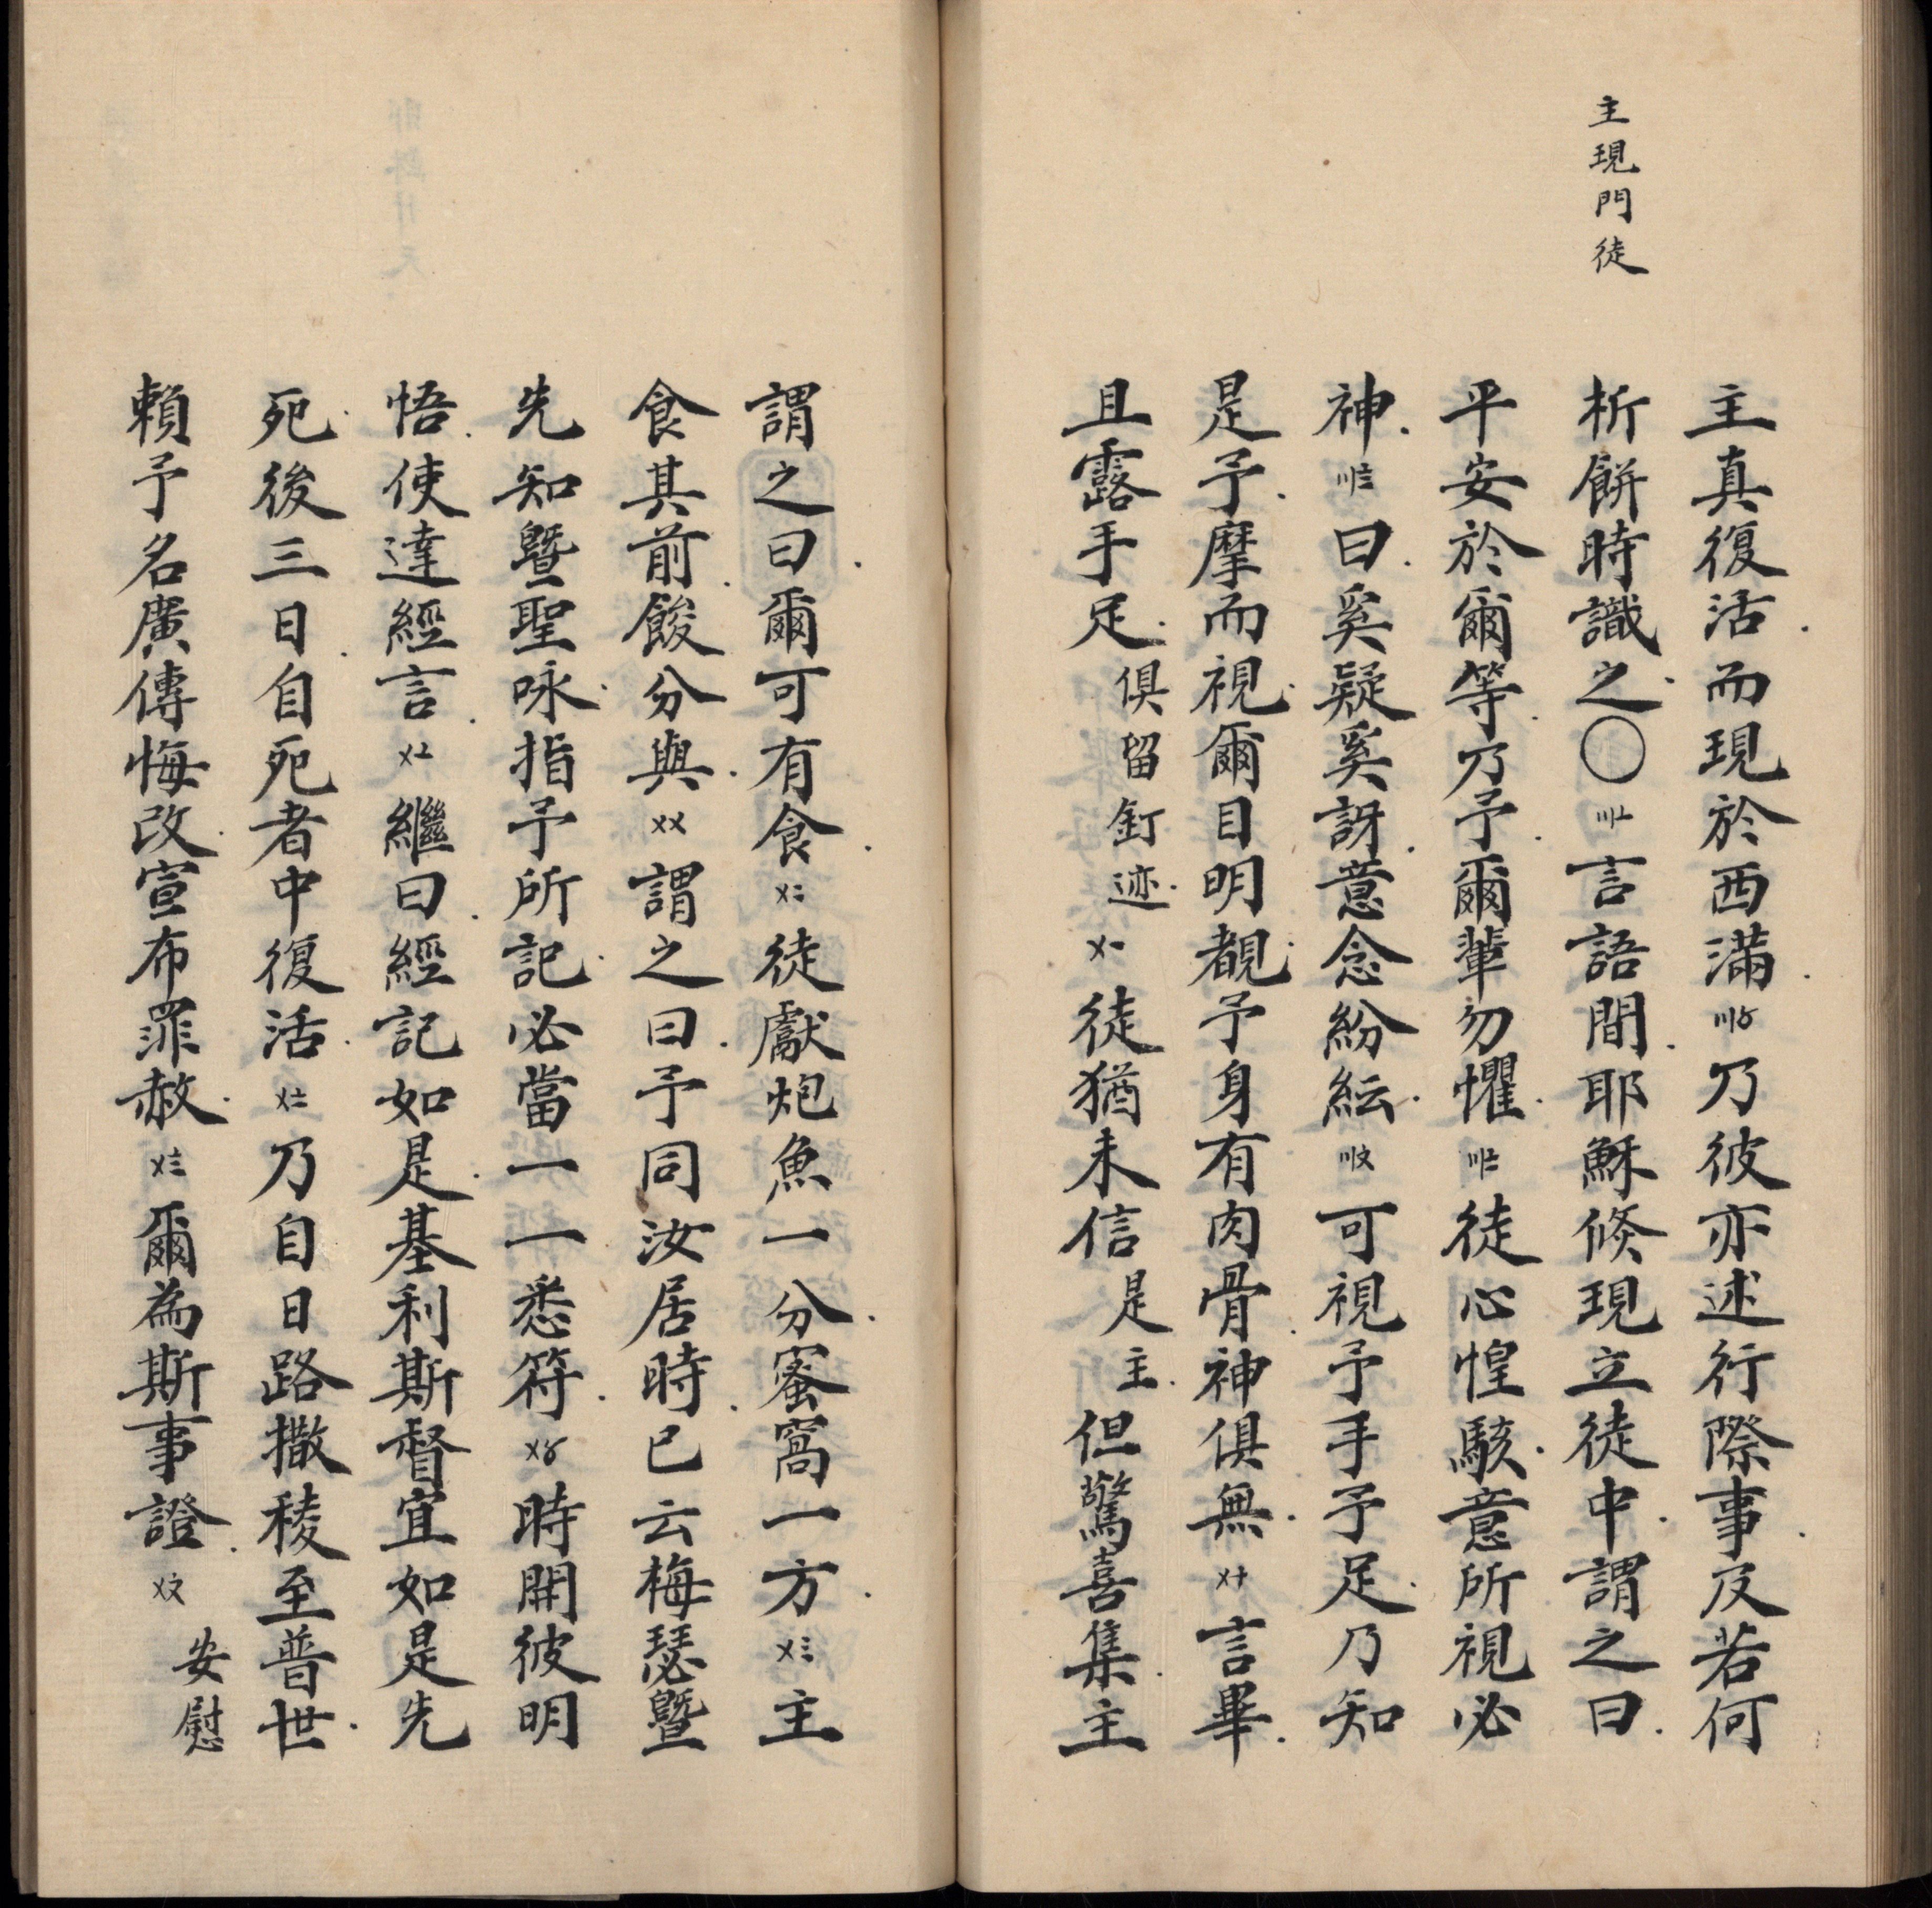 主現門徒
主真復活而現於西滿〣〥乃彼亦述行際事及若何
析餅時識之〇〣〦言語間耶穌倐現立徒中謂之曰
平安於爾等乃予爾輩勿懼〣〧徒心惶駭意所視必
神〣〨曰奚疑奚訝意念紛紜〣〩可視予手予足乃知
是予摩而視爾目明覩予身有肉骨神俱無〤十言畢
且露手足俱留釘迹〤一徒猶未信是主但驚喜集主
謂之曰爾可有食〤二徒獻炮魚一分蜜窩一方〤三主
食其前餕分與〤〤謂之曰予同汝居時已云梅瑟暨
先知暨聖咏指予所記必當一一悉符〤〥時開彼明
悟使達經言〤〦繼曰經記如是基利斯督宜如是先
死後三日自死者中復活〤〧乃自日路撒稜至普世
賴予名廣傳悔改宣布罪赦〤〨爾為斯事證〤〩安慰